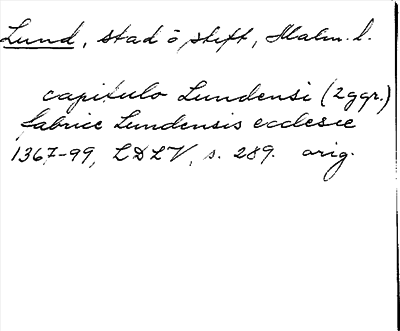 Lund, stad o stift, Malm. l.
capitulo Lundensi (2 ggr.)
fabrice Lundensis ecclesie
1367-99, LDLV, s. 289. orig.